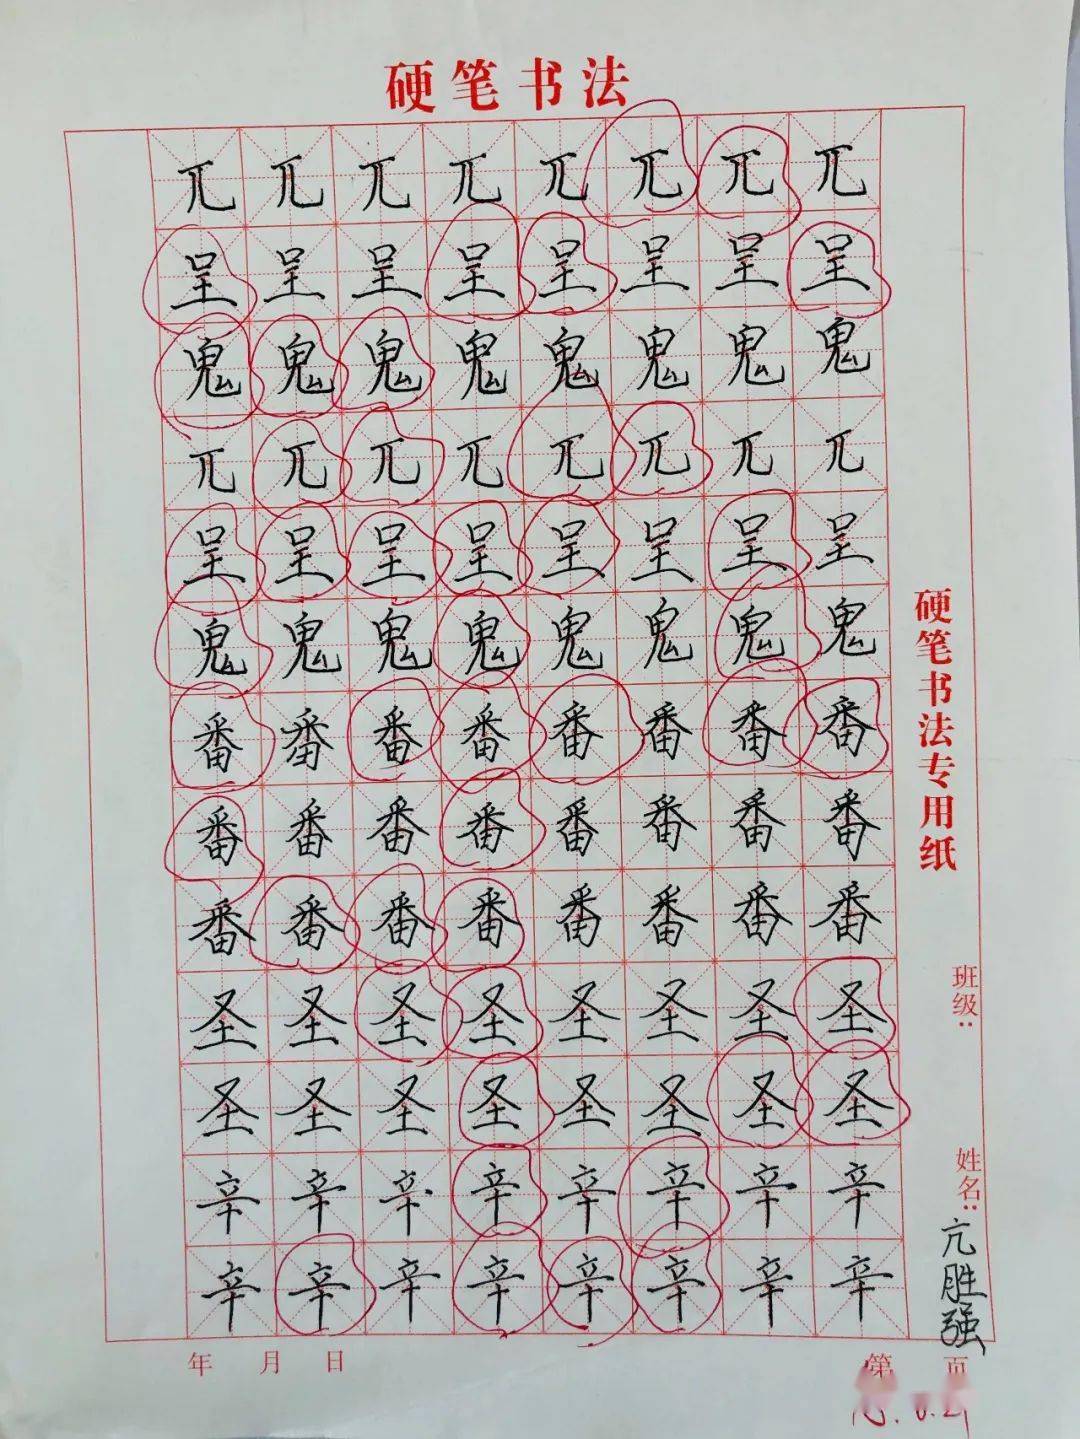 硬笔书法
兀兀兀兀兀兀兀兀
呈呈呈呈呈呈呈呈
鬼鬼鬼鬼鬼鬼鬼鬼
兀兀兀兀兀兀兀兀
呈呈呈呈呈呈呈呈
鬼鬼鬼鬼鬼鬼鬼鬼
番番番番番番番番
番番番番番番番番
番番番番番番番番
圣圣圣圣圣圣圣圣
圣圣圣圣圣圣圣圣
辛辛辛辛辛辛辛辛
辛辛辛辛辛辛辛辛
硬笔书法专用纸
班级:
姓名:亢胜强
年 月 日
第 页